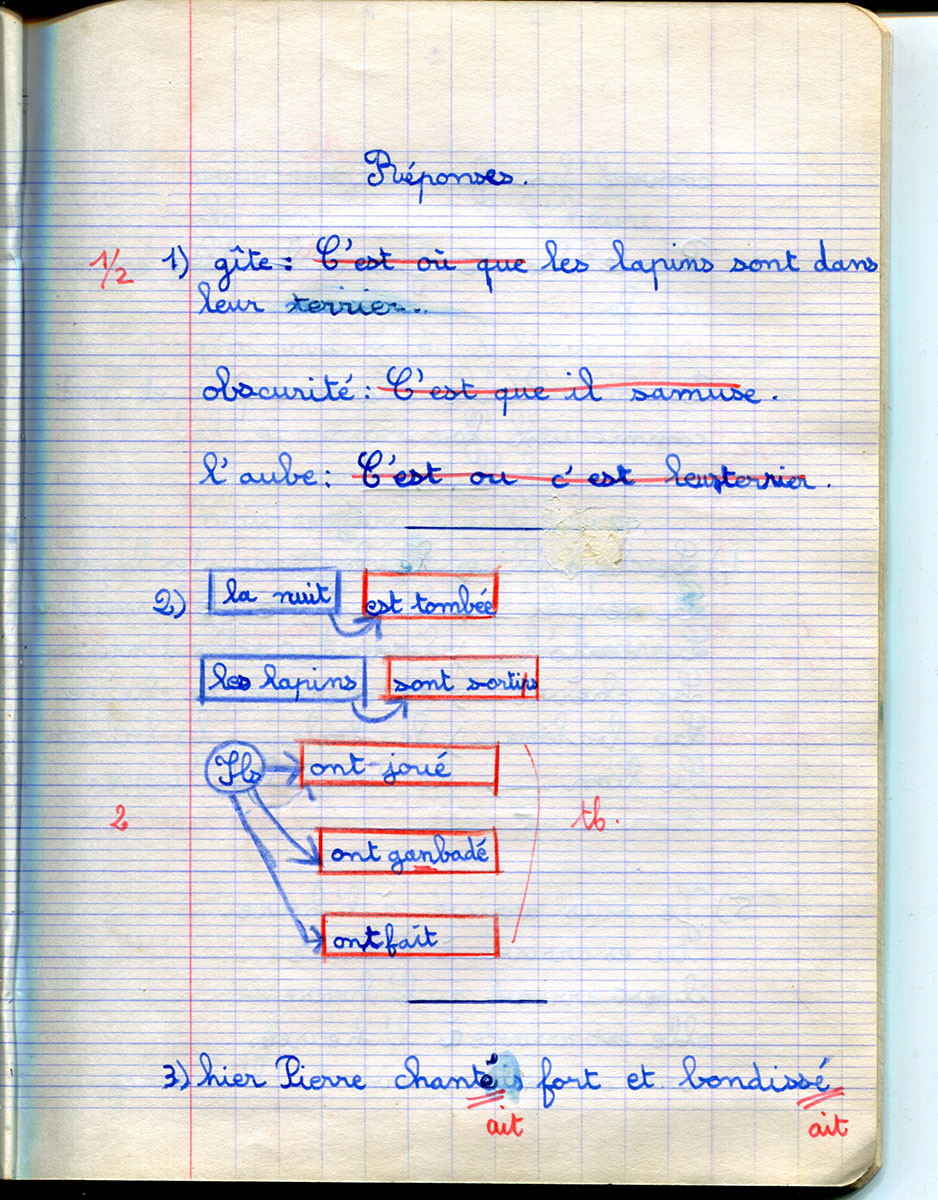 Réponses.
1/2 1) gîte : C'est où que les lapins sont dans
leur terrier.
obscurité : C'est que il samuse.
l'aube : C'est ou c'est leur terrier.
2) la nuit est tombée
les lapins sont sortis
Ils ont joué
2 ont ganbadé tb.
ont fait
3) hier Pierre chanté fort et bondissé
ait ait